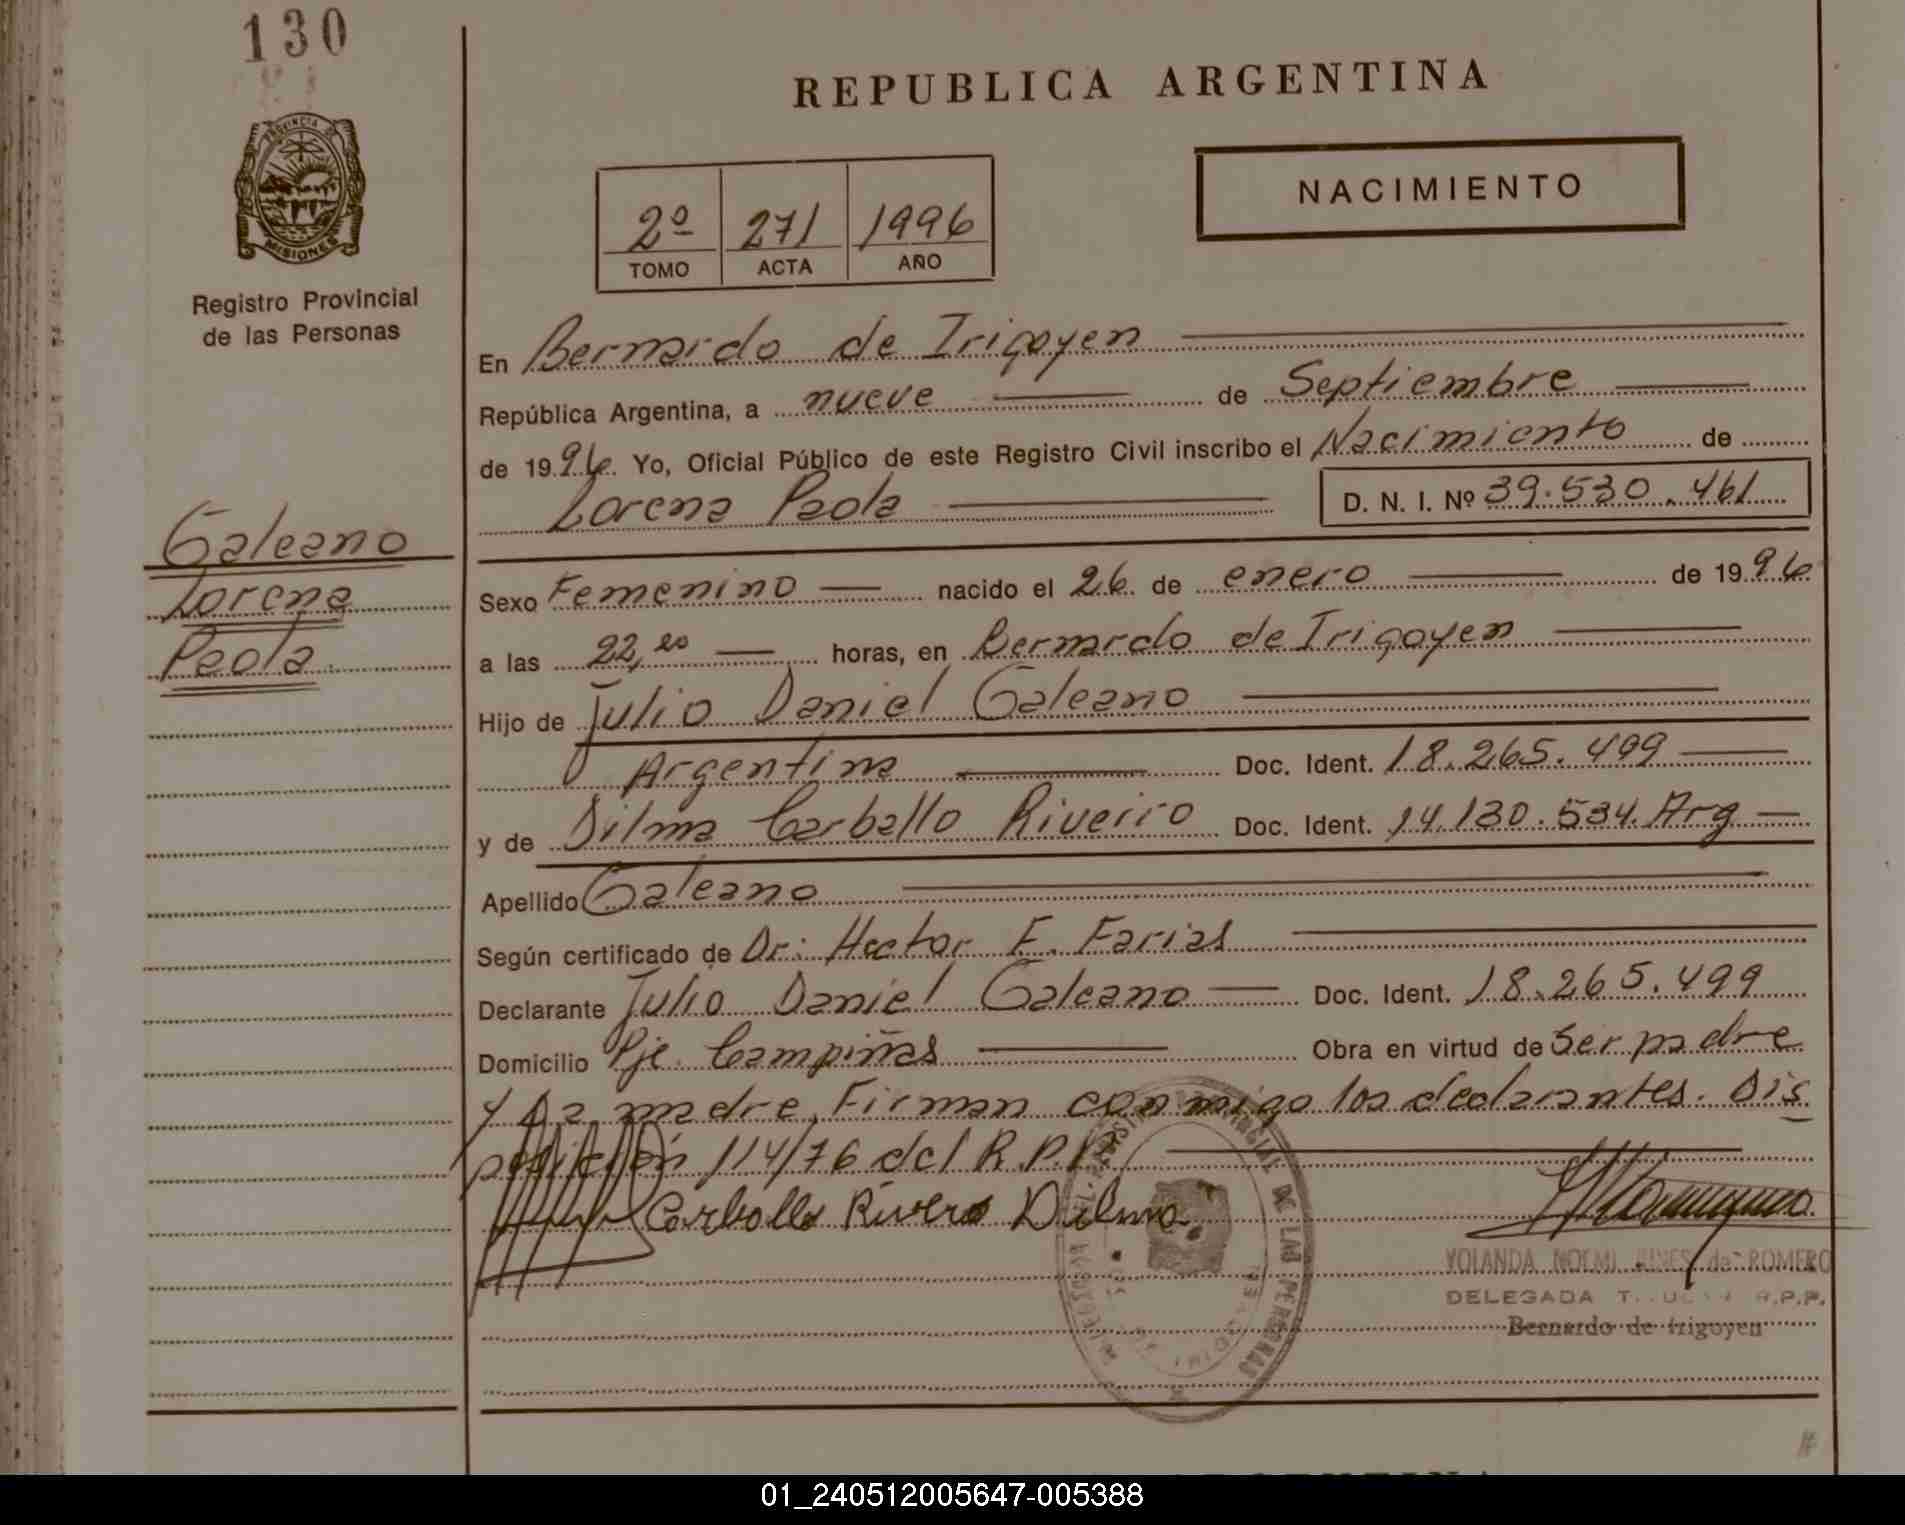 130
PROVINCIA DE
MISIONES
Registro Provincial
de las Personas
Galeano
Lorena
Paola
REPUBLICA ARGENTINA
NACIMIENTO
2º 271 1996
TOMO ACTA AÑO
En Bernardo de Irigoyen
República Argentina, a nueve de Septiembre
de 1996 Yo, Oficial Público de este Registro Civil inscribo el Nacimiento de
Lorena Paola D. N. I. Nº 39.530.461
Sexo Femenino nacido el 26 de enero de 1996
a las 22,20 horas, en Bernardo de Irigoyen
Hijo de Julio Daniel Galeano
Argentina Doc. Ident. 18.265.499
y de Dilma Carballo Riveiro Doc. Ident. 14.130.534. Arg
Apellido Galeano
Según certificado de Dr: Hector F. Farias
Declarante Julio Daniel Galeano Doc. Ident. 18.265.499
Domicilio Pje. Campiñas Obra en virtud de Ser padre
y La madre, Firman conmigo los declarantes. Dis
posición 114/76 del R.P.P.
Carballo Rivero Dilma
YOLANDA NOEMI de ROMERO
DELEGADA R.P.P.
Bernardo de Irigoyen
01_240512005647-005388